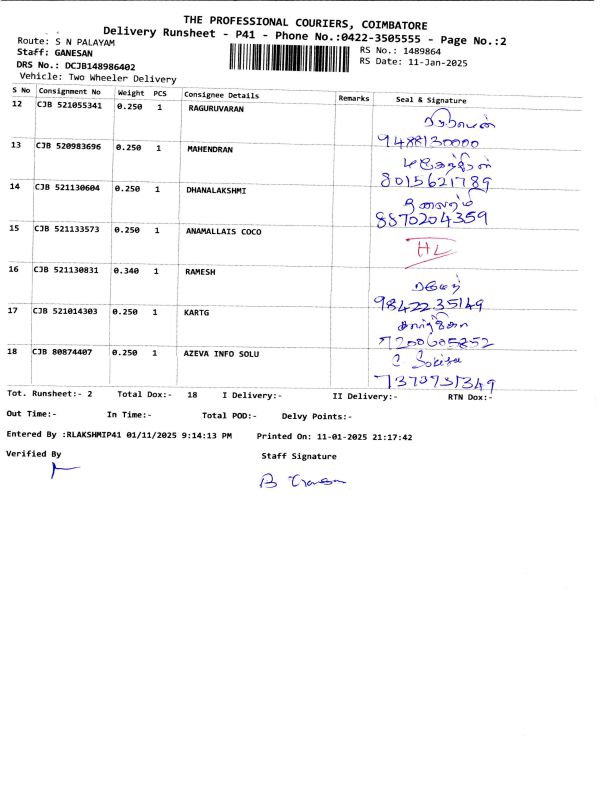 THE PROFESSIONAL COURIERS, COIMBATORE
Delivery Runsheet - P41 - Phone No.:0422-3505555 - Page No.:2
Route: S N PALAYAM
RS No.: 1489864
Staff: GANESAN
RS Date: 11-Jan-2025
DRS No.: DCJB148986402
Vehicle: Two Wheeler Delivery
S No Consignment No Weight PCS Consignee Details Remarks Seal & Signature
12 CJB 521055341 0.250 1 RAGURUVARAN
9488130000
13 CJB 520983696 0.250 1 MAHENDRAN
மகேந்திரன்
8015621789
14 CJB 521130604 0.250 1 DHANALAKSHMI
8870204359
15 CJB 521133573 0.250 1 ANAMALLAIS COCO
HL
16 CJB 521130831 0.340 1 RAMESH
ரமேஷ்
9842235149
17 CJB 521014303 0.250 1 KARTG
7200605252
18 CJB 80874407 0.250 1 AZEVA INFO SOLU
7373731349
Tot. Runsheet:- 2 Total Dox:- 18 I Delivery:- II Delivery:- RTN Dox:-
Out Time:- In Time:- Total POD:- Delvy Points:-
Entered By :RLAKSHMIP41 01/11/2025 9:14:13 PM Printed On: 11-01-2025 21:17:42
Verified By Staff Signature